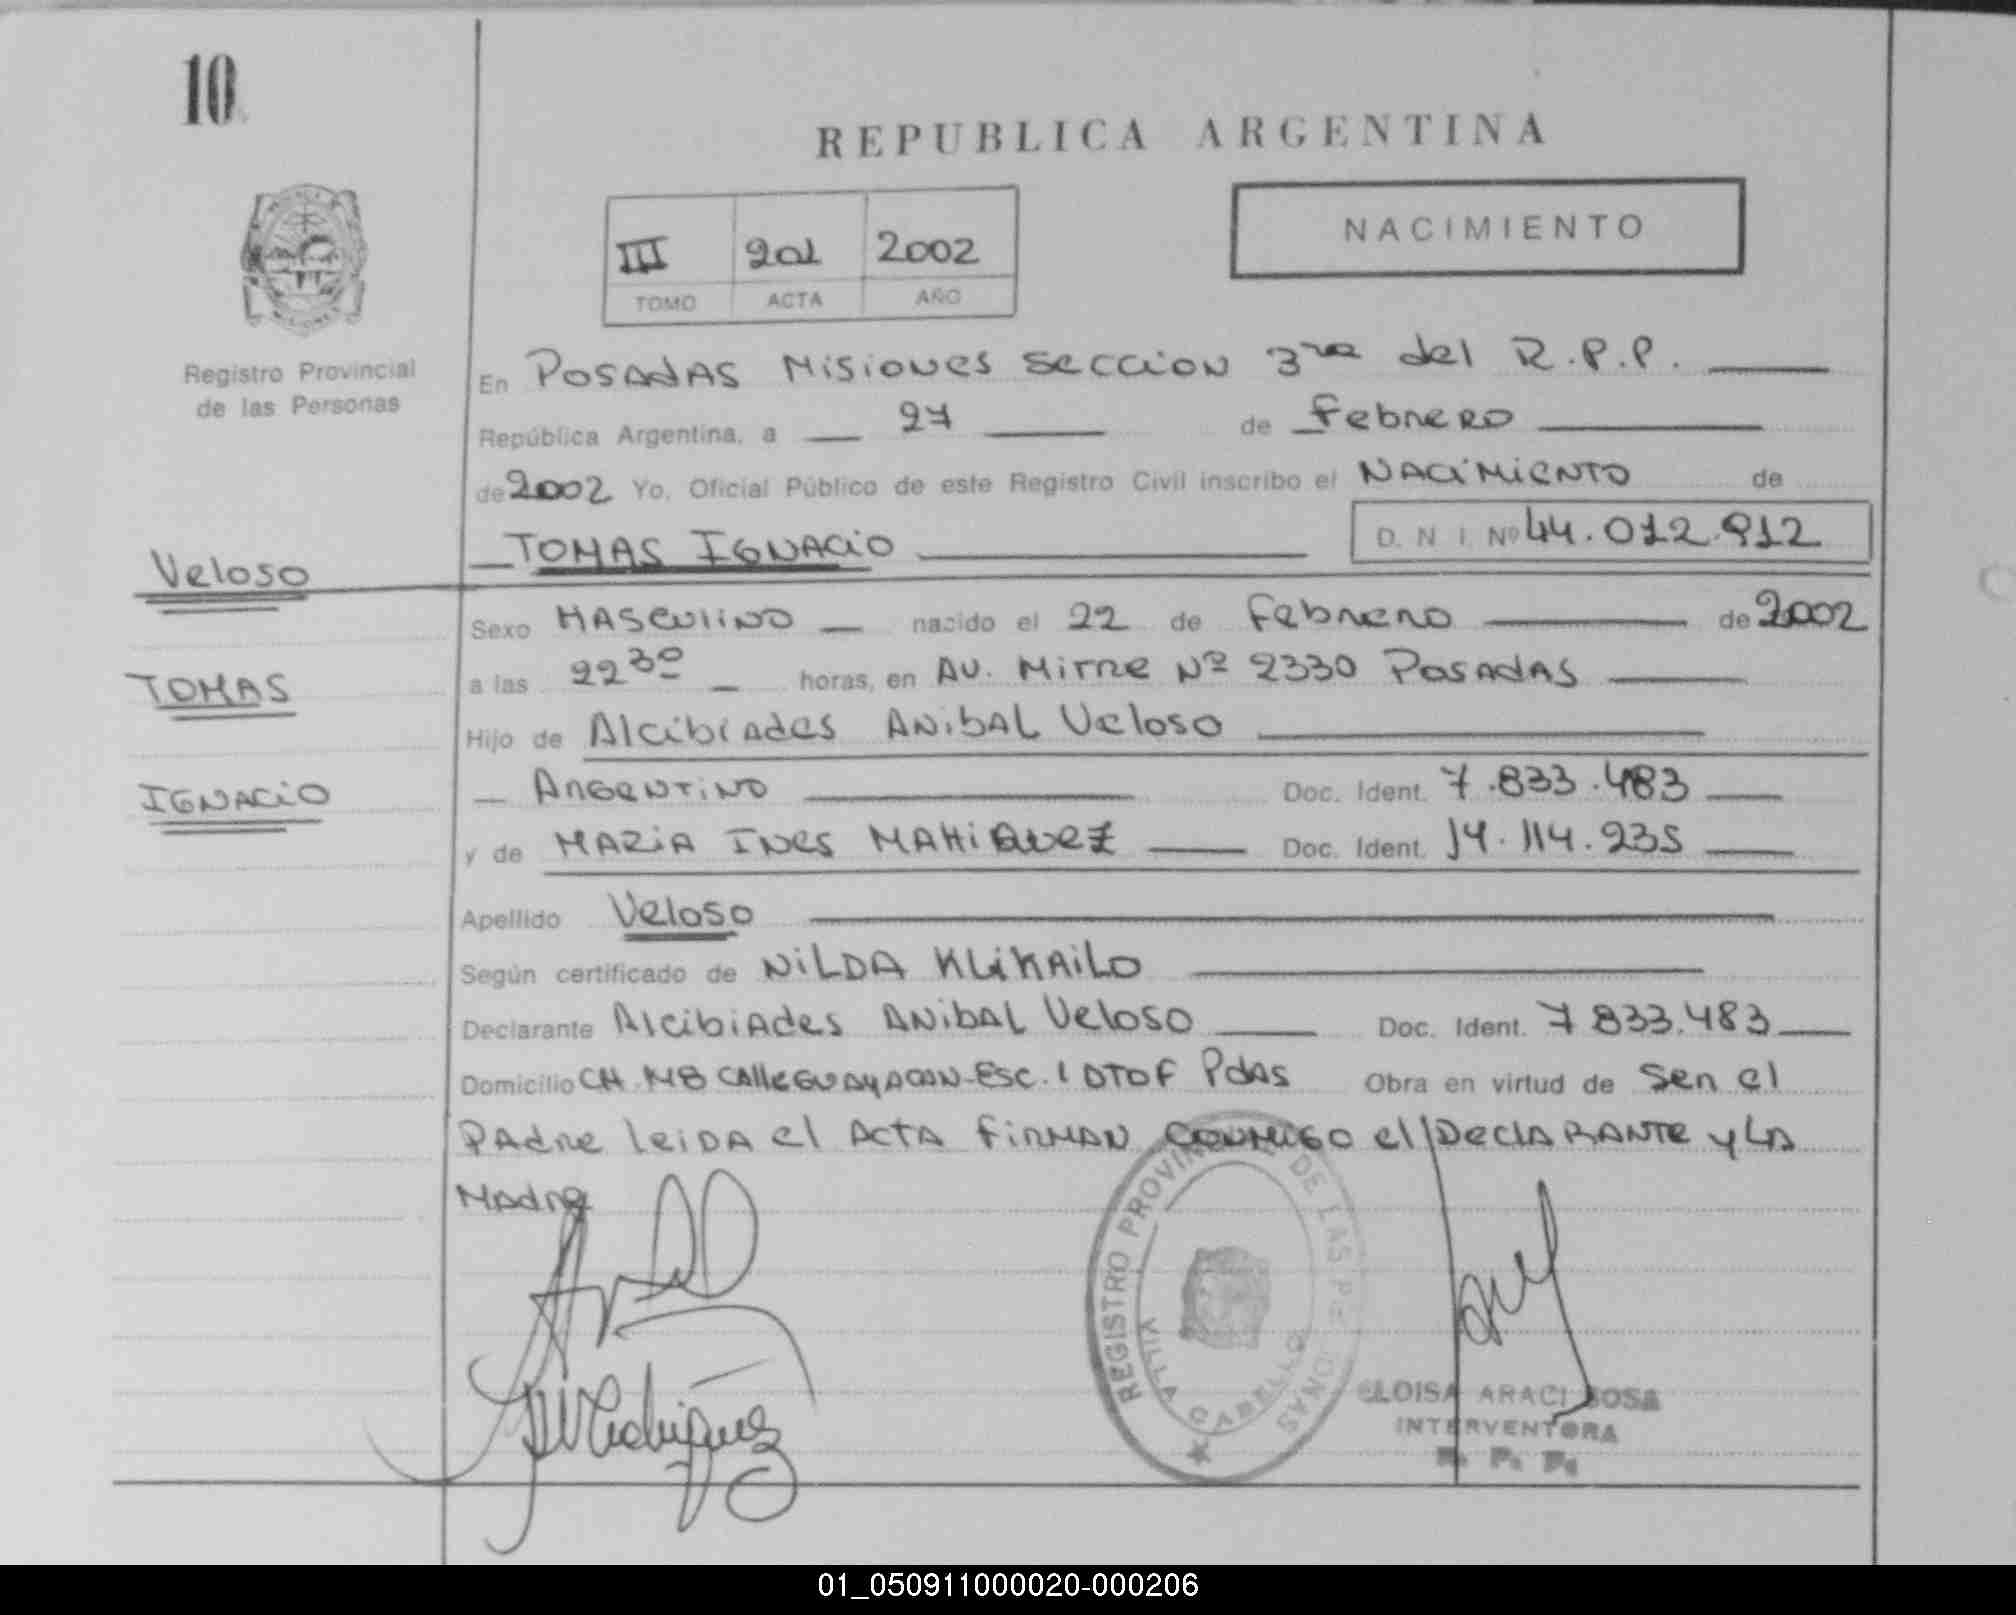 10
REPUBLICA ARGENTINA
III 201 2002
TOMO ACTA AÑO
NACIMIENTO
Registro Provincial
de las Personas
En POSADAS Misiones Seccion 3ra del R.P.P.
República Argentina, a 27 de Febrero
de 2002 Yo, Oficial Público de este Registro Civil inscribo el NACIMIENTO de
TOMAS IGNACIO D.N.I. Nº 44.012.912
Veloso
TOMAS
IGNACIO
Sexo MASCULINO nacido el 22 de Febrero de 2002
a las 22 30 horas, en AV. Mitre Nº 2330 POSADAS
Hijo de Alcibiades ANibAL Veloso
ARGENTINO Doc. Ident. 7.833.483
y de MARIA INES Doc. Ident. 14.114.235
Apellido Veloso
Según certificado de NILDA KLIKAILO
Declarante Alcibiades ANibAL Veloso Doc. Ident. 7 833.483
Domicilio CH Calle Esc. 1 Pdas Obra en virtud de Ser el
PAdre leiDA el ActA FirMAN CONMIGO el DeclARANTE y LA
MAdre
REGISTRO PROVINCIAL DE LAS PERSONAS
VILLA CABELLO
ELOISA ARACI SOSA
INTERVENTORA
R. P. P.
01_050911000020-000206